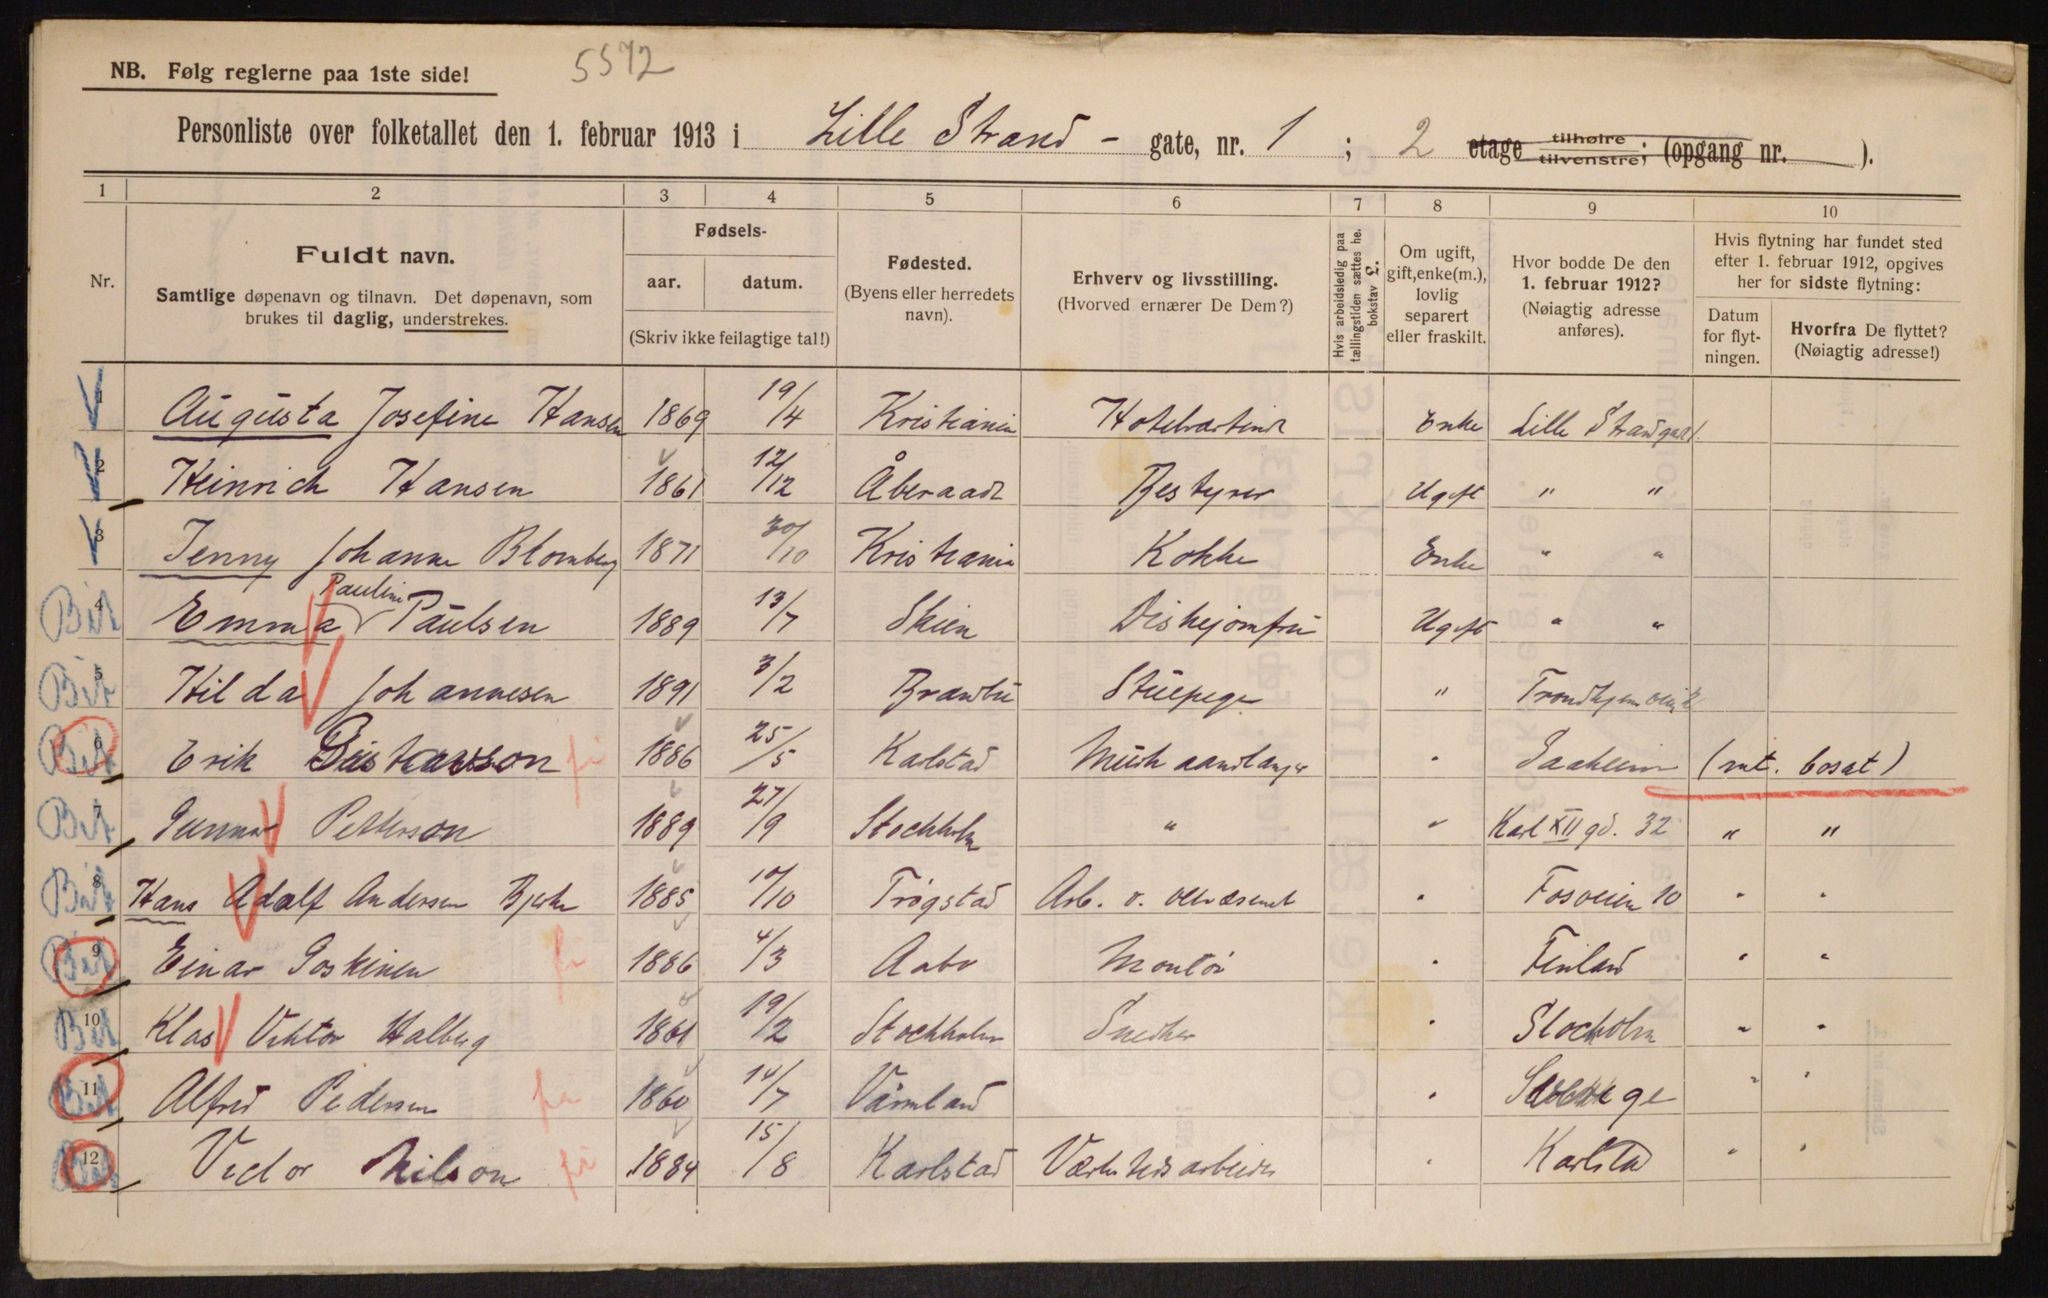 NB. Følg reglerne paa 1ste side!
5572
Personliste over folketallet den 1. februar 1913 i Lille Strand - gate, nr. 1 ; 2 etage tilhøire tilvenstre; (opgang nr. ).
1 2 3 4 5 6 7 8 9 10
Nr.
Fuldt navn.
Samtlige døpenavn og tilnavn. Det døpenavn, som
brukes til daglig, understrekes.
Fødsels-
aar. datum.
(Skriv ikke feilagtige tal!)
Fødested.
(Byens eller herredets
navn).
Erhverv og livsstilling.
(Hvorved ernærer De Dem?)
Hvis arbeidsledig paa
tællingstiden sættes he.
bokstav L.
Om ugift,
gift, enke(m.),
lovlig
separert
eller fraskilt.
Hvor bodde De den
1. februar 1912?
(Nøiagtig adresse
anføres).
Hvis flytning har fundet sted
efter 1. februar 1912, opgives
her for sidste flytning:
Datum
for flyt-
ningen.
Hvorfra De flyttet?
(Nøiagtig adresse!)
1 Augusta Josefine Hansen 1869 19/4 Kristiania Hotelværtind Enke Lille Strandgad 1.
2 Heinrich Hansen 1861 12/12 Åberaade Bestyrer Ugift " "
3 Jenny Johanne Blomberg 1871 30/10 Kristiania Kokke Enke " "
Pauline
Bit 4 Emma Paulsen 1889 13/7 Skien Diskejomfru Ugift " "
Bit 5 Hilda Johannesen 1891 3/2 Brandbu Stuepige " Trondhjemsveien
Bit 6 Erik Gustavsson 1886 25/5 Karlstad Musk aandlanger " Saaheim (mt. bosat)
Bit 7 Gunnar Petterson 1889 27/9 Stockholm " " Karl XII gd. 32 " "
Bit 8 Hans Adolf Andersen Bjerke 1885 10/10 Trøgstad Arb. v. veivæsenet " Fosveien 10 " "
Bit 9 Einar Koskinen 1886 4/3 Aabo Montør " Finland " "
Bit 10 Klas Viktor Halberg 1861 19/2 Stockholm Snedker " Stockholm " "
Bit 11 Alfred Pedersen 1860 14/7 Värmland " " "
12 Vidor Nilson 1884 15/8 Karlstad Værkstedsarbeider " Karlstad " "